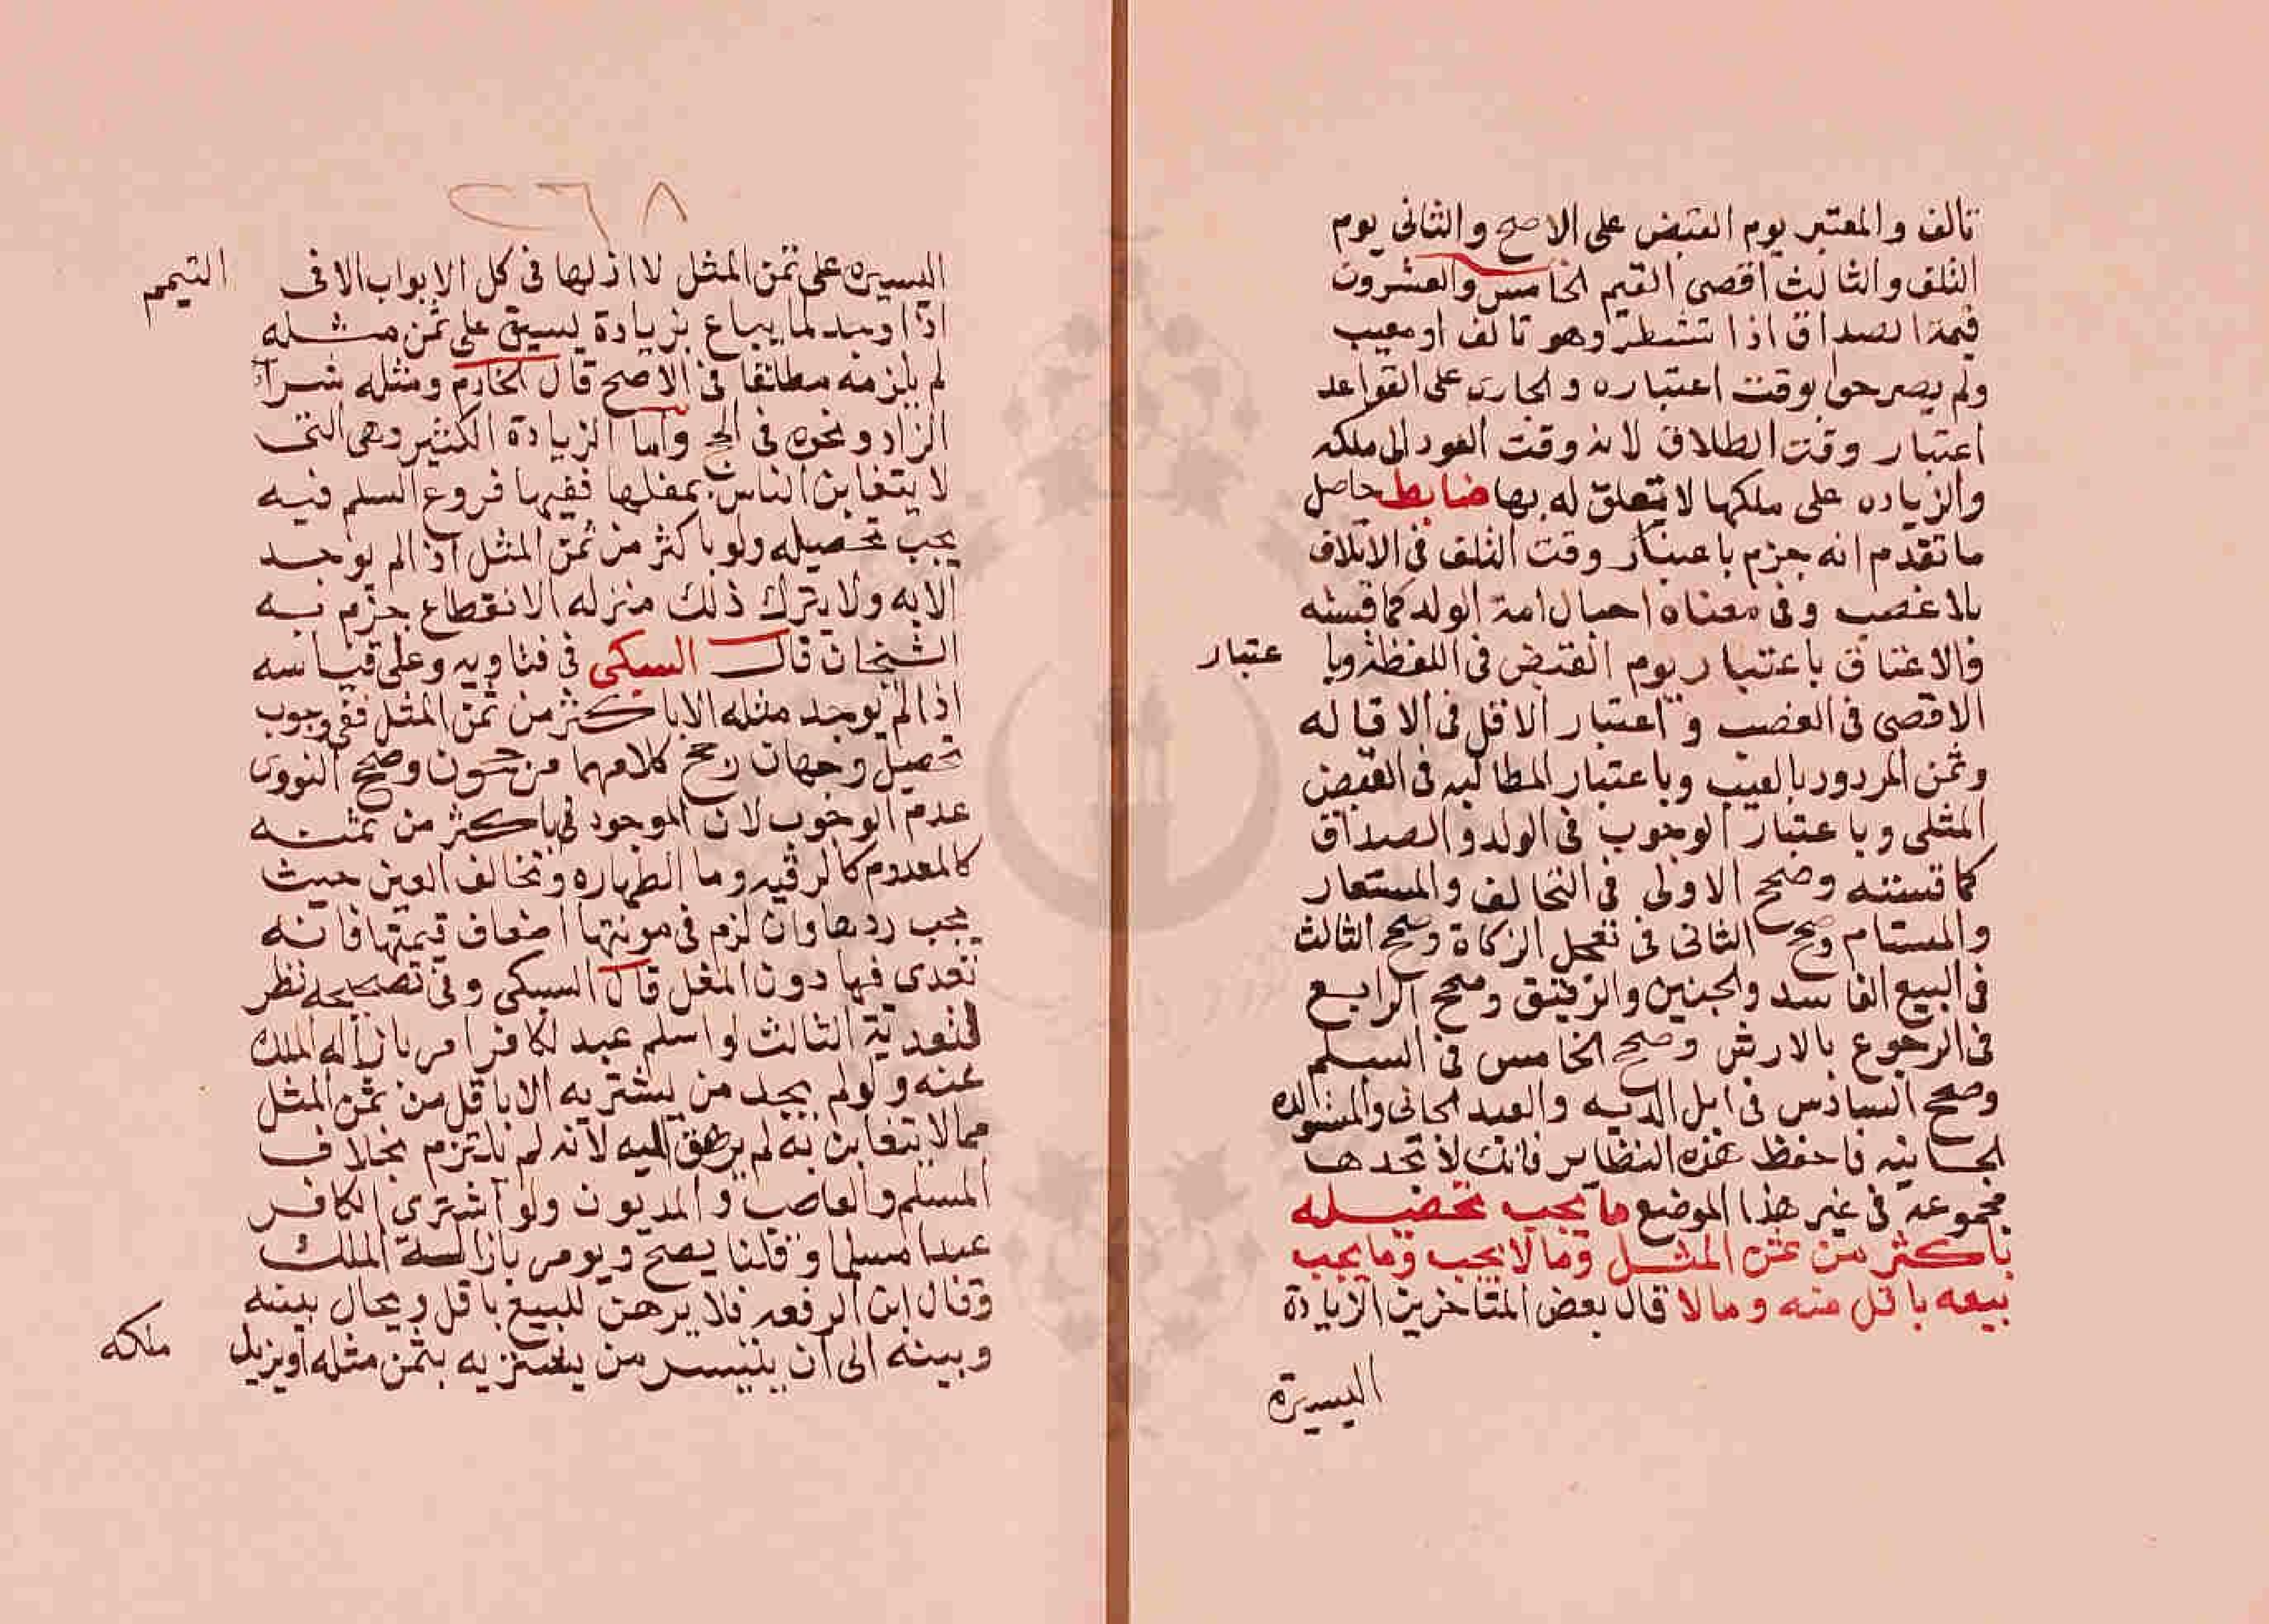 تالف والمعتبر يوم القبض على الاصح والثانى يوم
التلف والثالث اقصى القيم الخامس والعشرون
قيمة الصداق اذا تشطر وهو تالف او معيب
ولم يصرحوا بوقت اعتباره والجارى على القواعد
اعتبار وقت الطلاق لانه وقت العود الى ملكه
والزياده على ملكها لا يتعلق له بها ضابط حاصل
ما تقدم انه جزم باعتبار وقت التلف فى الاتلاف
بلا غصب وفى معناه احبال امة الولد كما قسته
والاعتاق باعتبار يوم القبض فى اللقطة وبا عتبار
الاقصى فى الغصب و اعتبار الاقل فى الاقاله
وثمن المردود بالعيب وباعتبار المطالبه فى القبض
المثلى وباعتبار الوجوب فى الولد والصداق
كما قسته وصحح الاولى فى التحالف والمستعار
والمستام وصحح الثانى فى تعجل الزكاة وصحح الثالث
فى البيع الفاسد والجنين والرقيق وصحح الرابع
فى الرجوع بالارش وصحح الخامس فى السلم
وصحح السادس فى ابل الديه والعبد الجانى والمستولده
الجانيه فاحفظ هذه النظاير فانك لا تجدها
مجموعة فى غير هذا الموضع ما يجب تحصيله
باكثر من ثمن المثل وما لا يجب وما يجب
بيعه باقل منه وما لا قال بعض المتاخرين الزيادة
اليسيرة
٢٦٨
اليسيره على ثمن المثل لا اثر لها فى كل الابواب الا فى التيمم
اذا وجد لما يباع بزيادة يسيرة على ثمن مثله
لم يلزمه مطلقا فى الاصح قال الخادم ومثله شراء
الزاد ونحوه فى الحج واما الزيادة الكثير وهى التى
لا يتغابن الناس بمثلها ففيها فروع السلم فيه
يجب تحصيله ولو باكثر من ثمن المثل اذا لم يوجد
الا به ولا يترك ذلك منزله الانقطاع جزم به
الشيخان قال السبكى فى فتاويه وعلى قياسه
اذا لم يوجد مثله الا باكثر من ثمن المثل ففى وجوب
تحصيل وجهان رجح كلامهما مرجحون وصحح النووى
عدم الوجوب لان الموجود باكثر من ثمنه
كالمعدوم كالرقبه وما الطهاره وتخالف العين حيث
يجب ردها وان لزم فى مونتها اضعاف قيمتها فانه
تعدى فيها دون المثل قال السبكى وفى تصحيحه نظر
لتعديه الثالث لو اسلم عبد لكافر امر بازاله الملك
عنه ولو لم يجد من يشتريه الا باقل من ثمن المثل
مما لا يتغابن به لم يرهق اليه لانه لم يلتزم بخلاف
المسلم والغاصب و المديون ولو اشترى الكافر
عبدا مسلما وقلنا يصح ويومر بازالة الملك
وقال ابن الرفعه فلا يرهن للبيع باقل ويحال بينه
وبينه الى ان يتيسر من يشتريه بثمن مثله او يزيل ملكه